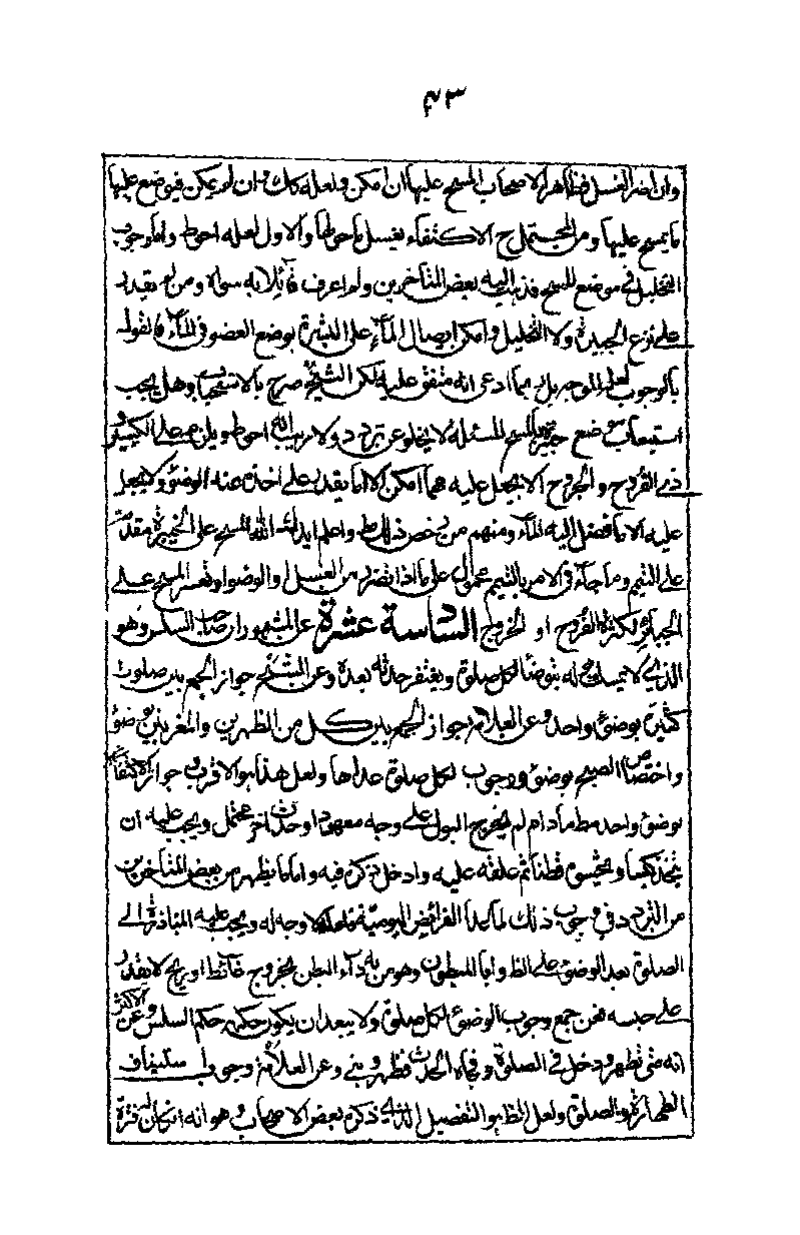 ٤٣
وان اضر الغسل فظاهر الاصحاب المسح عليها ان امكن ولعله كك وان لم يكن فيوضع عليها
ما يمسح عليها ومن المحتمل ح الاكتفاء بغسل ما حولها والاول لعله احوط واما وجوب
التخليل في موضع المسح فذهب اليه بعض المتاخرين ولم اعرف قائلا به سواه ومن لم يقدر
على نزع الجبيرة ولا التخليل وامكن ايصال الماء على البشرة بوضع العضو في الماء فالقول
بالوجوب لعله الموجه بل ربما ادعى انه متفق عليه لكن الشيخ صرح بالاستحباب وهل يجب
استيعاب موضع المسح المسئلة لا يخلو عن تردد ولا ريب انه احوط ويلزم على الكسير و
ذي القروح والجروح الا يجعل عليه مهما امكن الا ما يقدر على اخذه عند الوضوء ولا يجعل
عليه الا ما فضل اليه الماء ومنهم من يخص ذلك واعلم ايدك الله ان المسح على الجبيرة مقدم
على التيمم وما جاء في الامر بالتيمم محمول على ما اذا تضرر من الغسل او الوضوء او تعسر المسح على
الجبائر لكثرة القروح او الجروح السادسة عشرة عن المشهور ان صاحب السلس وهو
الذي لا يتمسك بوله يتوضأ لكل صلوة ويغتفر حدثه بعده وعن الشيخ جواز الجمع بين صلوات
كثيرة بوضوء واحد وعن العلامة جواز الجمع بين كل من الظهرين والمغربين بوضوء
واختصاص الصبح بوضوء ووجوب لكل صلوة عداها ولعل هذا هو الاقرب وجواز الاكتفاء
بوضوء واحد مط مادام لم يخرج البول على وجه معهود او حدث اخر محتمل ويجب عليه ان
يتخذ كيسا ويحشوه قطنا ثم علقه عليه وادخل ذكره فيه واما ما يظهر من بعض المتاخرين
من التردد في وجوب ذلك لما عدا الفرائض اليومية فلعله لا وجه له ويجب عليه المبادرة الى
الصلوة بعد الوضوء على الظ واما المبطون وهو من به داء البطن لخروج غائط او ريح لا يقدر
على حبسه فعن جمع وجوب الوضوء لكل صلوة ولا يبعد ان يكون حكمه حكم السلس وعن الاكثر
انه متى تطهر ودخل في الصلوة وفجاه الحدث تطهر وبنى وعن العلامة وجوب استيناف
الطهارة والصلوة ولعل الظ هو التفصيل الذي ذكره بعض الاصحاب وهو انه ان كان له فترة